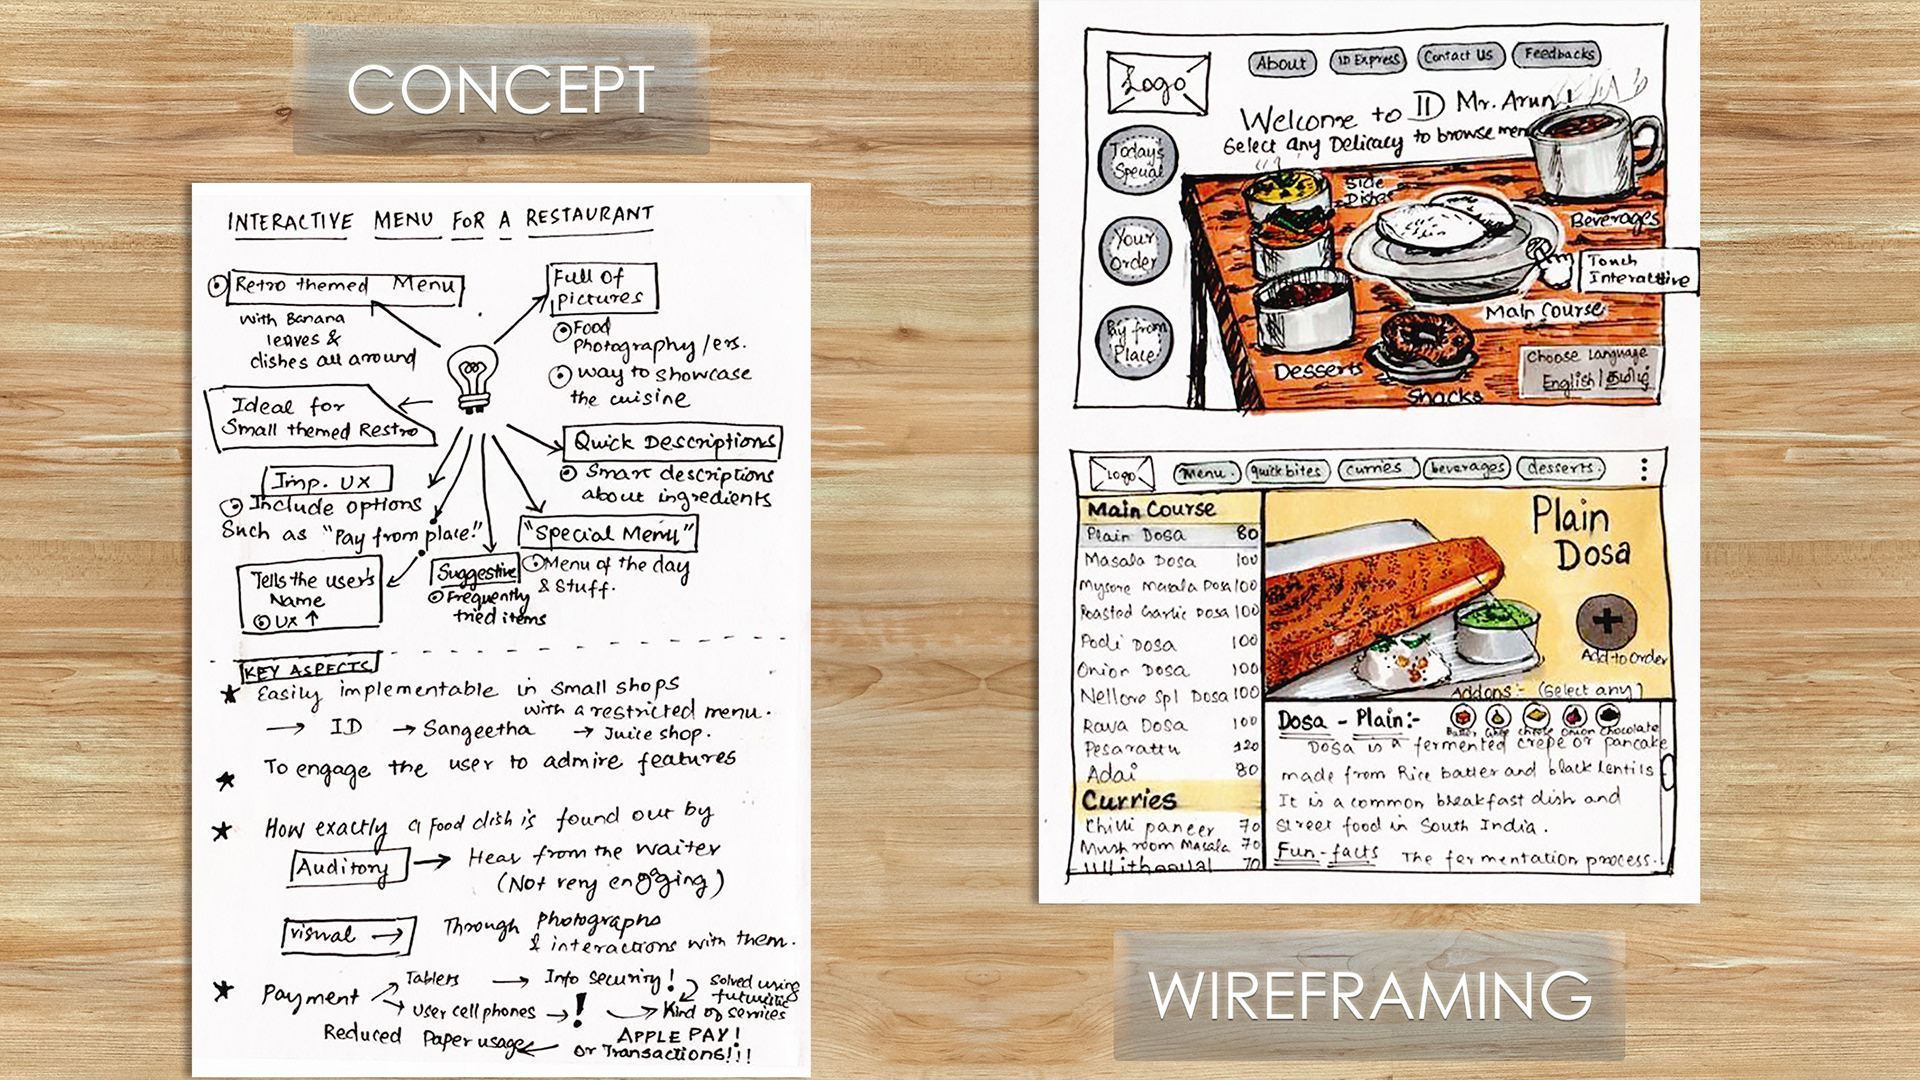 CONCEPT
INTERACTIVE MENU FOR A RESTAURANT
Retro themed Menu
with Banana
leaves &
dishes all around
Full of
pictures
Food
Photography /ers.
way to showcase
the cuisine
Ideal for
Small themed Restro
Quick Descriptions
Smart descriptions
about ingredients
Imp. UX
Include options
Such as "Pay from place!"
"Special Menu"
Menu of the day
& Stuff.
Tells the user's
Name
UX ↑
Suggestive
Frequently
tried items
KEY ASPECTS
★ Easily implementable in small shops
with a restricted menu.
→ ID → Sangeetha → Juice shop.
★ To engage the user to admire features
★ How exactly a food dish is found out by
Auditory → Hear from the waiter
(Not very engaging)
visual → Through photographs
& interactions with them.
★ Payment → Tablets → Info security!
→ User cell phones → ! → Kind of services
Solved using
futuristic
APPLE PAY!
or Transactions!!!
Reduced Paper usage
Logo
About
ID Express
Contact Us
Feedbacks
Welcome to ID Mr. Arun!
Select any Delicacy to browse menu
Todays
Special
Your
Order
Pay from
Place
Side
Dishes
Beverages
Touch
Interactive
Main Course
Desserts
Snacks
Choose Language
English | தமிழ்
Logo
Menu.
quickbites
curries
beverages
desserts.
Main Course
Plain Dosa 80
Masala Dosa 100
Mysore Masala Dosa 100
Roasted Garlic Dosa 100
Podi Dosa 100
Onion Dosa 100
Nellore Spl Dosa 100
Rava Dosa 100
Pesarattu 120
Adai 80
Curries
Chilli paneer 70
Mushroom Masala 70
70
Plain
Dosa
+
Add to Order
Addons:- (Select any)
Butter Ghee cheese Onion Chocolate
Dosa - Plain:-
Dosa is a fermented crepe or pancake
made from Rice batter and black lentils
It is a common breakfast dish and
street food in South India.
Fun-facts The fermentation process.
WIREFRAMING